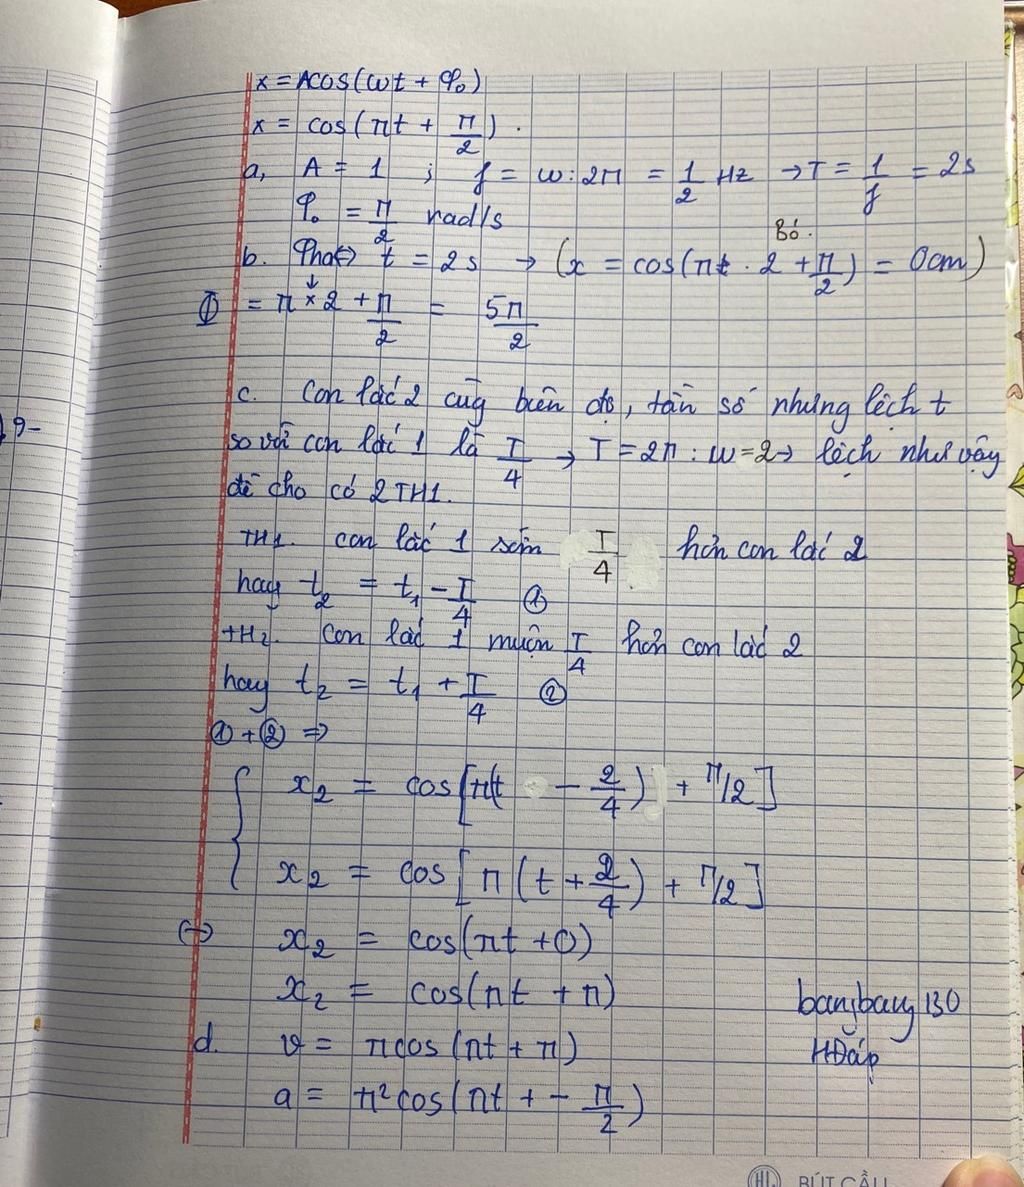 x = Acos(ωt + φ₀)
x = cos(πt + π/2).
a, A = 1 ; f = ω : 2π = 1/2 Hz → T = 1/f = 2s
φ₀ = π/2 rad/s
Bỏ.
b. Pha t = 2s → (x = cos(πt . 2 + π/2) = 0cm)
Φ = π × 2 + π/2 = 5π/2
9-
c. Con lắc 2 cùg biên độ, tần số nhưng lệch t
so với con lắc 1 là T/4 → T = 2π : ω = 2 → lệch như vậy
đề cho có 2 TH1.
TH1. con lắc 1 sớm T/4 hơn con lắc 2
hay t₂ = t₁ - T/4 ①
TH2. Con lắc 1 muộn T/4 hơn con lắc 2
hay t₂ = t₁ + T/4 ②
① + ② ⇒
x₂ = cos[π(t - 2/4) + π/2]
x₂ = cos[π(t + 2/4) + π/2]
↔ x₂ = cos(πt + 0)
x₂ = cos(πt + π)
bangbang 130
d. v = πcos(πt + π)
HĐáp
a = π²cos(πt + - π/2)
HL BÚT CẦU